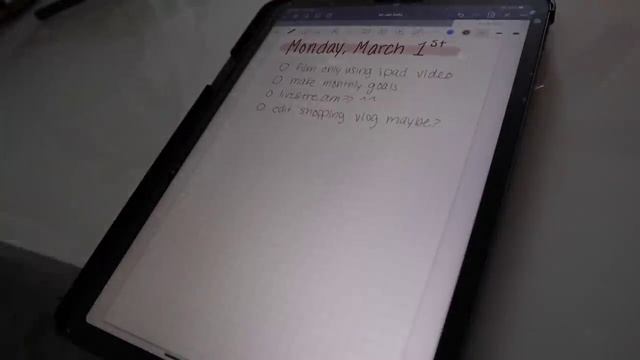 Monday, March 1st
O film only using ipad video
O make monthly goals
O livestream → ^^
O edit shopping vlog maybe?